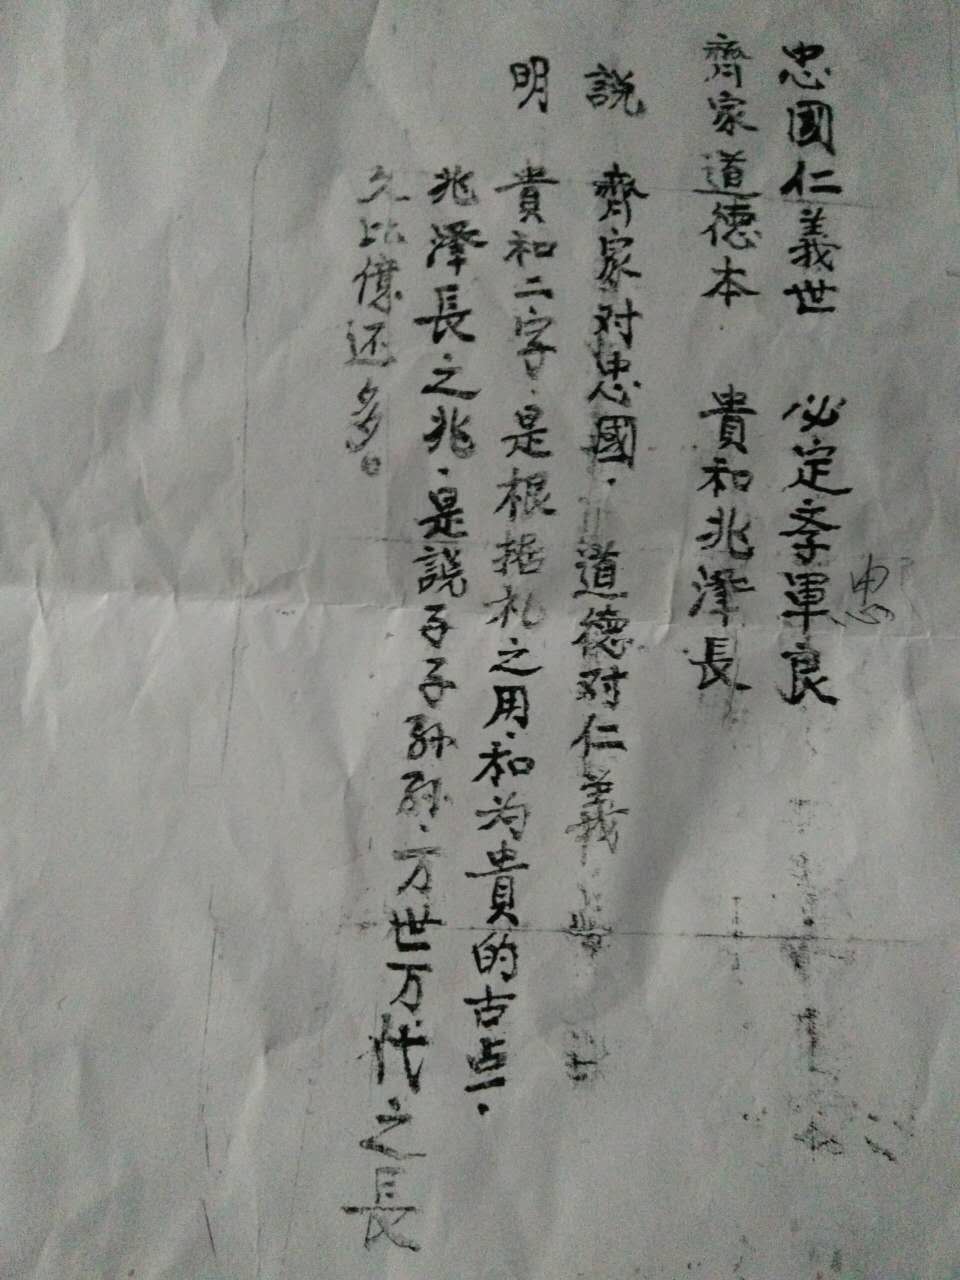 忠國仁義世 必定孝軍良
忠
齊家道德本 貴和兆澤長
說 齊家对忠國．道德对仁義
明 貴和二字．是根据礼之用．和为貴的古占一．
兆澤長之兆．是說子子孫孫．万世万代之長
久比億还多。